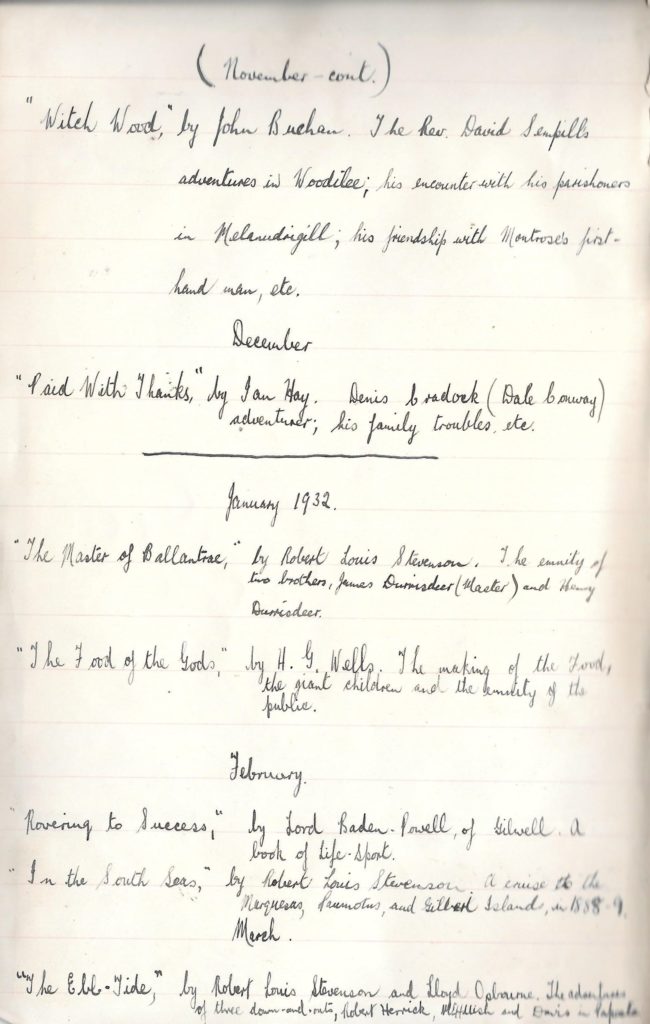 (November - cont.)
"Witch Wood," by John Buchan. The Rev. David Sempills
adventures in Woodilee; his encounter with his parishoners
in Melanudrigill; his friendship with Montrose's first-
hand man, etc.
December
"Paid With Thanks," by Ian Hay. Denis Cradock (Dale Conway)
adventurer; his family troubles, etc.
January 1932.
"The Master of Ballantrae," by Robert Louis Stevenson. The enmity of
two brothers, James Durrisdeer (Master) and Henry
Durrisdeer.
"The Food of the Gods," by H. G. Wells. The making of the Food,
the giant children and the enmity of the
public.
February.
"Rovering to Success," by Lord Baden-Powell, of Gilwell. A
book of life-sport.
"In the South Seas," by Robert Louis Stevenson. A cruise to the
Marquesas, Paumotus, and Gilbert Island, in 1888-9.
March.
"The Ebb-Tide," by Robert Louis Stevenson and Lloyd Osbourne. The adventures
of three down-and-outs, Robert Herrick, and Davis in